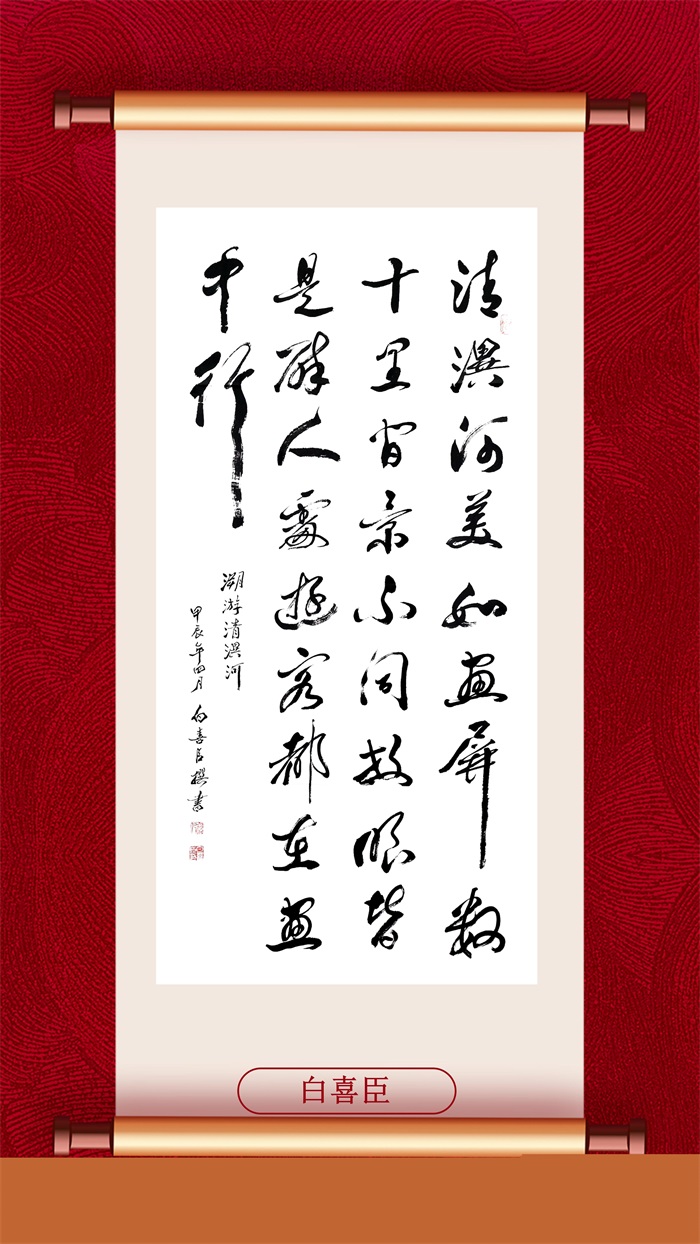 清潩河美如畫屏数
十里间景不同放眼皆
是醉人處遊客都在畫
中行
溯游清潩河
甲辰年四月 白喜臣撰书
白喜臣